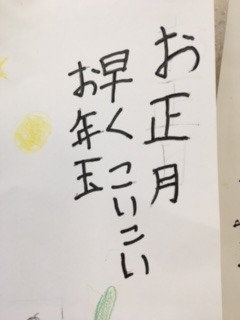 お正月
早くこいこい
お年玉